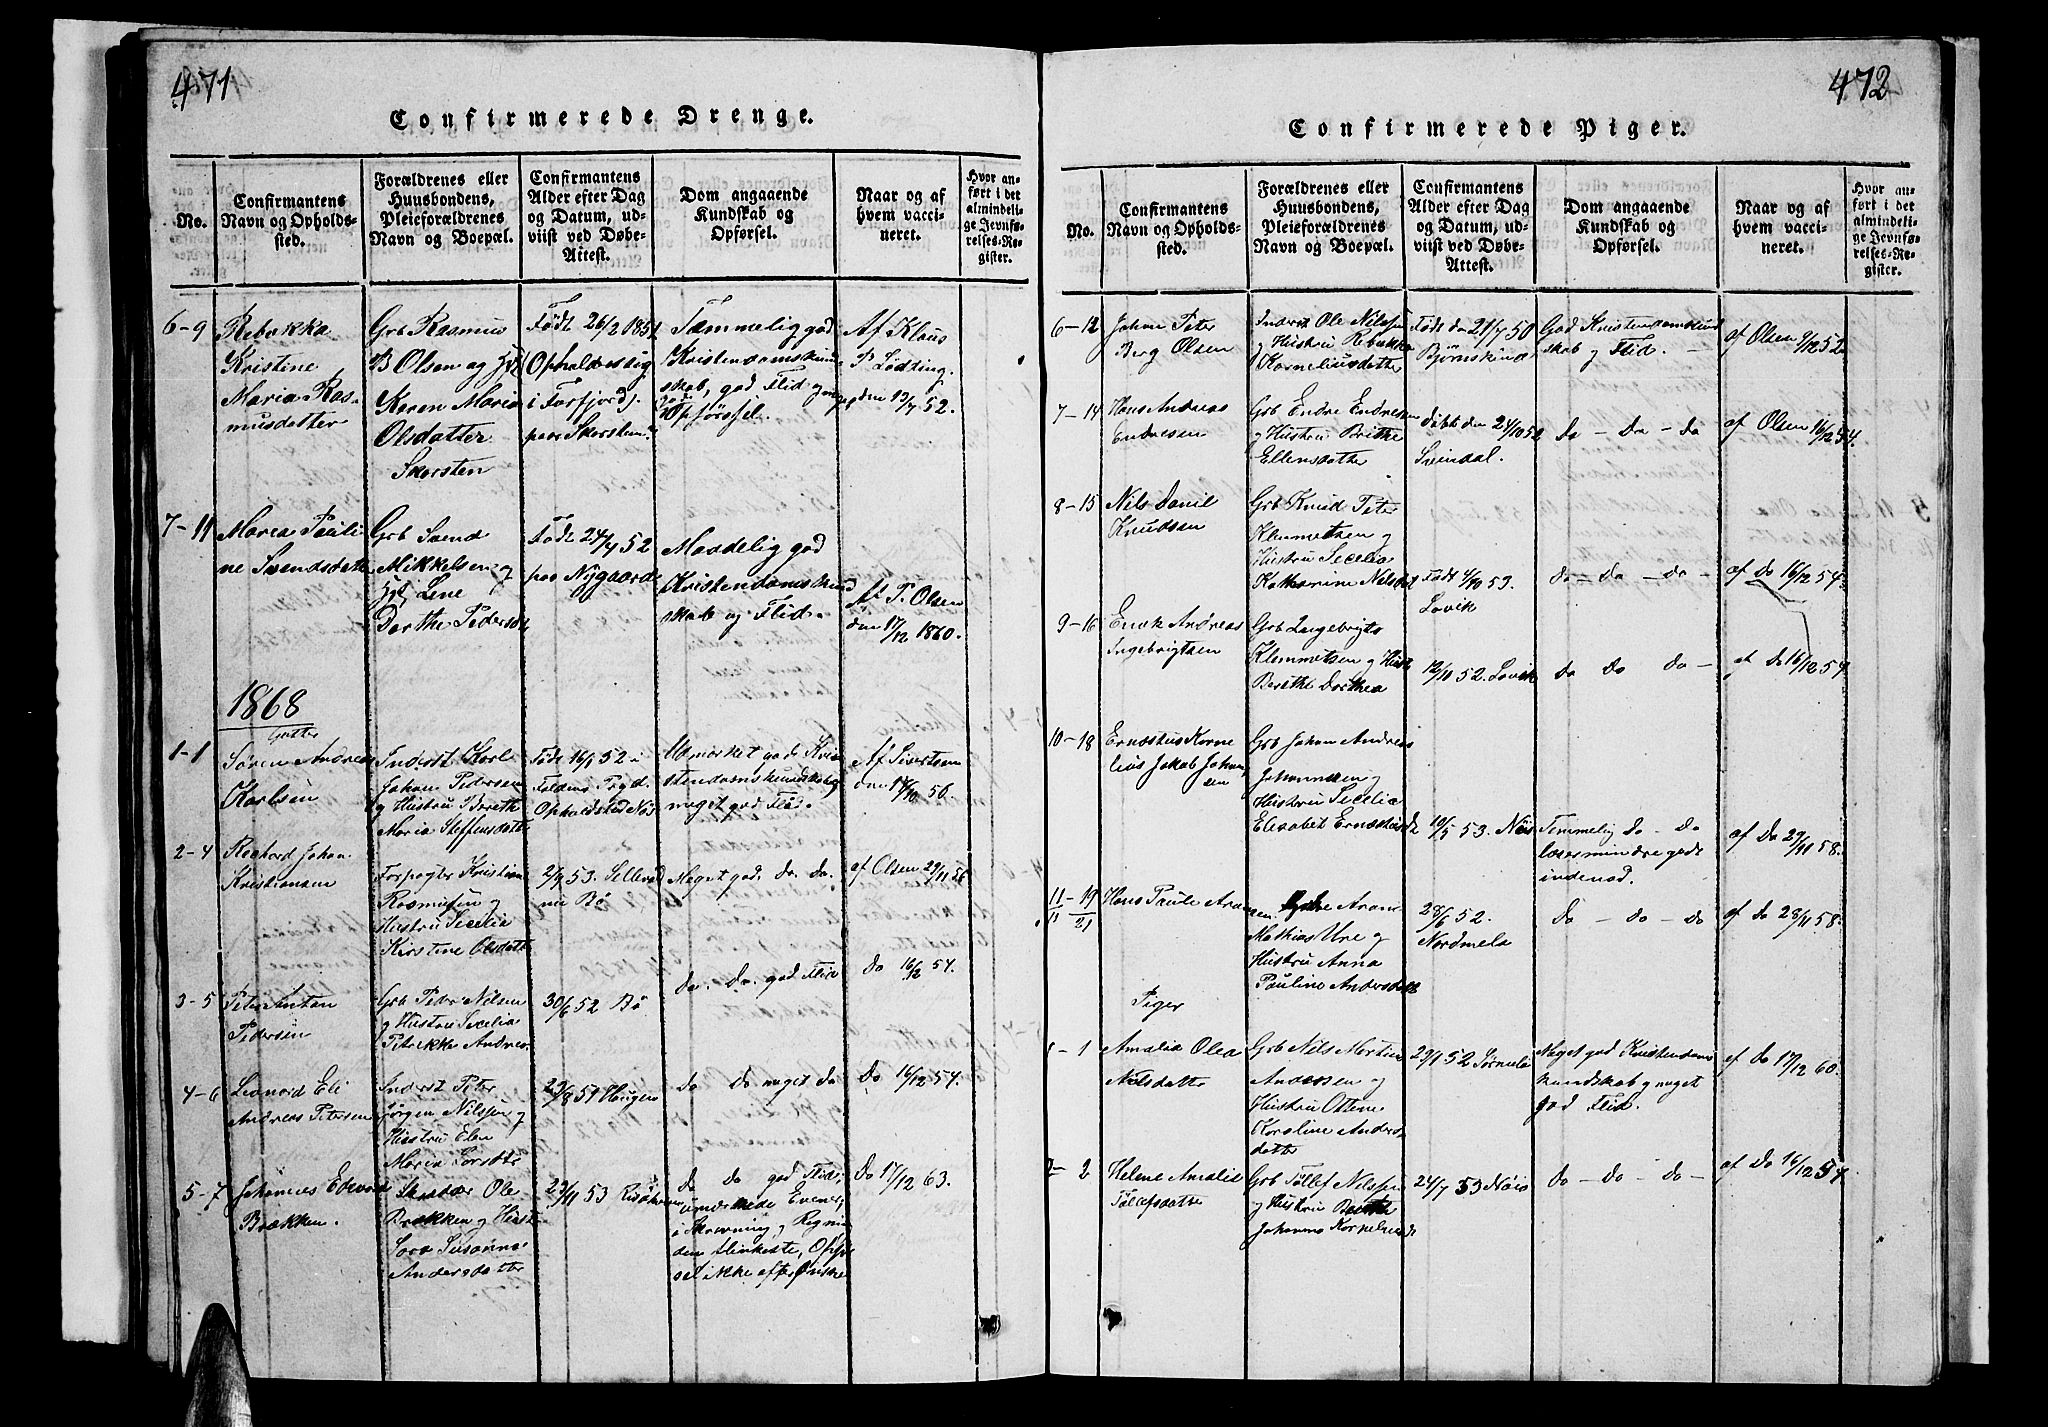 471
Confirmerede Drenge.
No.
Confirmantens
Navn og Opholds-
sted.
Forældrenes eller
Huusbondens,
Pleieforældrenes
Navn og Boepæl.
Confirmantens
Alder efter Dag
og Datum, ud-
viist ved Døbe-
Attest.
Dom angaaende
Kundskab og
Opførsel.
Naar og af
hvem vacci-
neret.
Hvor an-
ført i det
almindeli-
ge Jevnfø-
relses-Re-
gister.
6-9
Rebekka
Kristine
Maria Ras-
musdatter
Grb Rasmus
B Olsen og
Karen Maria
Olsdatter
Skorsten
Født 26/2 1851
Opholdessig
i Forfjord
paa Skorsten
Temmelig god
Kristendomskund
skab, god Flid og
Opførsel.
Af Klaus
P Lødting
den 13/7 52.
7-11
Maria Pauli
ne Svendsdatt
Grb Svend
Mikkelsen og
Lene
Dorthe Pedersd
Født 24/4 52
paa Nygaard
Maadelig god
Kristendomskund
skab og Flid.
Af P. Olsen
den 17/12 1860.
1868
Gutter
1-1
Søren Andreas
Karlsen
Inderst Karl
Johan Pedersen
og Hustru Bereth
Maria Steffensdatt
Født 16/1 52 i
Opholdsted Nøs
Udmærket god Kri
stendomskundskab og
meget god Flid.
Af Sivertsen
den 17/10 56.
2-4
Rechard Johan
Kristiansen
Forpagter Kristian
Rasmusen og
Hustru Secelia
Kirstine Olsdatt
2/9 53.
nu Bø
Meget god, do. do.
af Olsen 29/11 56
3-5
Peter Anton
Pedersen
Grb Peter Nilsen
og Hustru Secelia
Petrekke Andrea
30/6 52 Bø
do. do. god Flid
Do 16/12 54.
4-6
Leonord Eli
Andreas Petersen
Inderst Peter
Jørgen Nilssen og
Hustru Elen
Maria
29/8 51 Haugen
do do meget do
Do 16/12 54.
5-7
Johannes Edvard
Brækken.
Ole
Brækken og Hust
Sara Susanna
Andersdatter
29/11 53
do do god Flid,
i Skrivning og Regnin
den flinkeste, Opfør
sel ikke efter Ønske
Do 17/12 63.
472
Confirmerede Piger.
No.
Confirmantens
Navn og Opholds-
sted.
Forældrenes eller
Huusbondens,
Pleieforældrenes
Navn og Boepæl.
Confirmantens
Alder efter Dag
og Datum, ud-
viist ved Døbe-
Attest.
Dom angaaende
Kundskab og
Opførsel.
Naar og af
hvem vacci-
neret.
Hvor an-
ført i det
almindeli-
ge Jevnfø-
relses-Re-
gister.
6-12
Johan Peter
Berg Olsen
Inderst Ole Nilssen
og Hustru Rebekka
Korneliusdatter
Født den 21/7 50
Bjørnskind
God Kristendomskund
skab og Flid. -
af Olsen 9/12 52
7-14
Hans Andreas
Endresen
Grb Endre Endresen
og Hustru Brithe
Ellensdatter
Født den 24/10 52
Sveindal.
Do - Do - do
af Olsen 16/12 54.
8-15
Nils Danil
Knudsen
Grb Knud Peter
Klemmetsen og
Hustru Secelia
Katharine Nilsdat
Født 4/10 53.
Lovik
do - do - do -
af do 16/12 54.
9-16
Enok Andreas
Ingebrigtsen
Grb Ingebrigts
Klemmetsen og Hust
Berethe Dorthea
12/10 52. Lovik
do do do -
af do 16/12 54
10-18
Ernestus Korne
lius Jakob Johan
sen
Grb Johan Andreas
Johannesen og
Hustru Secelia
Elesabet Ernestusd
10/5 53. Nøis
Temmelig do - do
læser mindre godt
indenad.
af Do 29/11 58.
11-19
11/21
Hans Paule Aron
sen
Aron
Mathias Ure og
Hustru Anna
Pauline Andersdatt
28/6 52.
Nordmela
Do - do - do
af do 28/11 58.
Piger
1-1
Amalia Olea
Nilsdatter
Grb Nils Mortin
Andersen og
Hustru Ottene
Karoline Anders
datter
29/1 52 Sørmela
Meget god Kristendoms
kundskab og meget
god Flid.
af do 17/12 60.
2-2
Helene Amalie
Tollefsdatter
Grb Tollef Nilssen
og Hustru Berthe
Johanna Kornelius d
24/7 53 Nøis
do - do - do -
af Do 16/12 54.